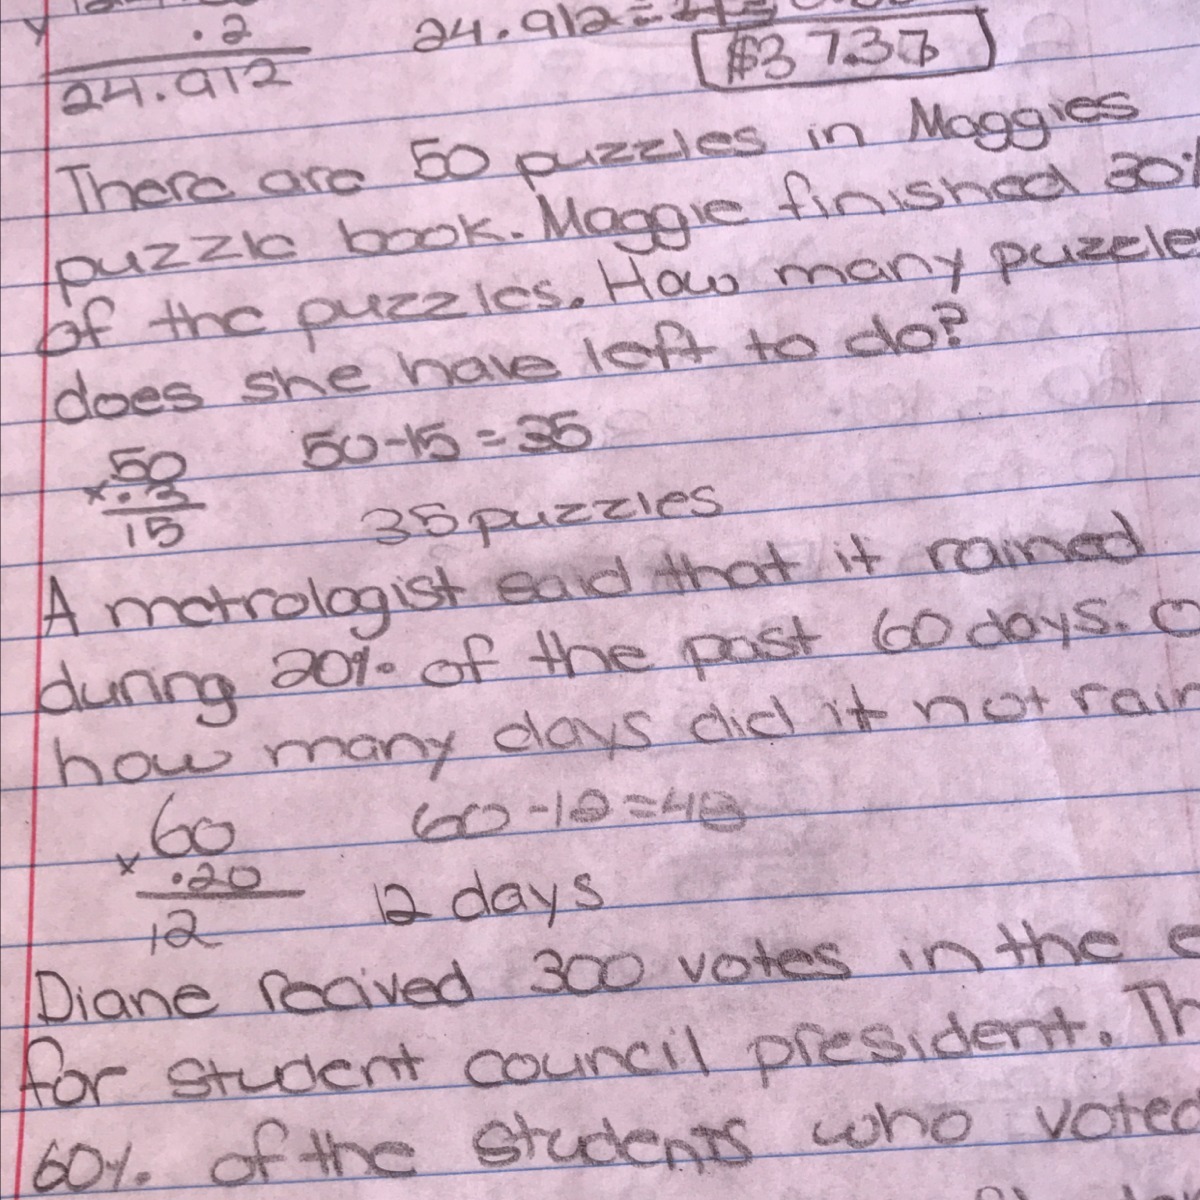 .2
24.912=
24.912
$37.37
There are 50 puzzles in Maggies
puzzle book. Maggie finished 30%
of the puzzles. How many puzzles
does she have left to do?
50 50-15=35
x.3
15 35 puzzles
A metrologist said that it rained
during 20% of the past 60 days.
how many days did it not rain
60 60-12=48
x .20
12 12 days
Diane recived 300 votes in the
for student council president.
60% of the students who voted